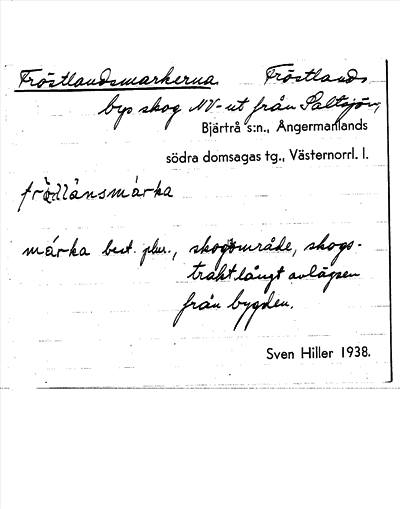 Fröstlandsmarkerna. Fröstlands
bys skog NV-ut från Saltsjön,
Bjärtrå s:n., Ångermanlands
södra domsagas tg., Västernorrl. l.
frö̀dlànsmàrka
márka best. plur., skogsområde, skogs-
trakt långt avlägsen
från bygden.
Sven Hiller 1938.